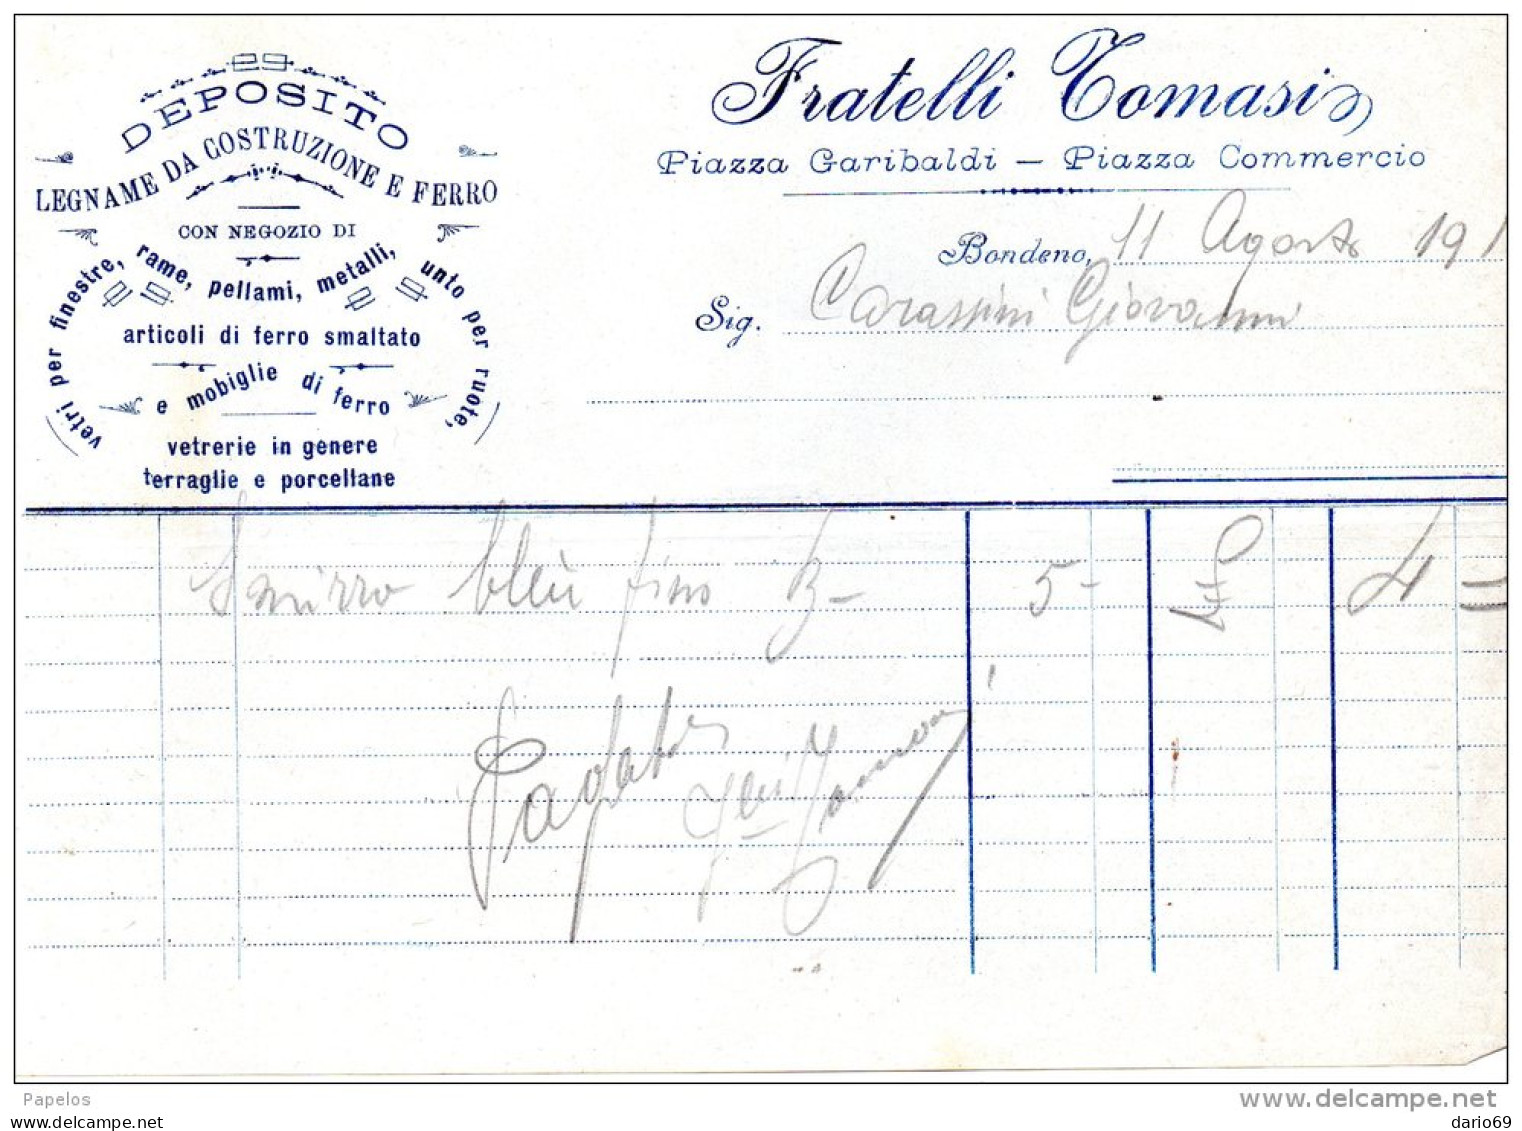 DEPOSITO
LEGNAME DA COSTRUZIONE E FERRO
CON NEGOZIO DI
vetri per finestre, rame, pellami, metalli, unto per ruote,
articoli di ferro smaltato
e mobiglie di ferro
vetrerie in genere
terraglie e porcellane
Fratelli Tomasi
Piazza Garibaldi — Piazza Commercio
Bondeno, 11 Agosto 191
Sig. Carassini Giovanni
bleu fino 5 - £ 4 =
Pagato
Papelos
www.delcampe.net
www.delcampe.net
dario69